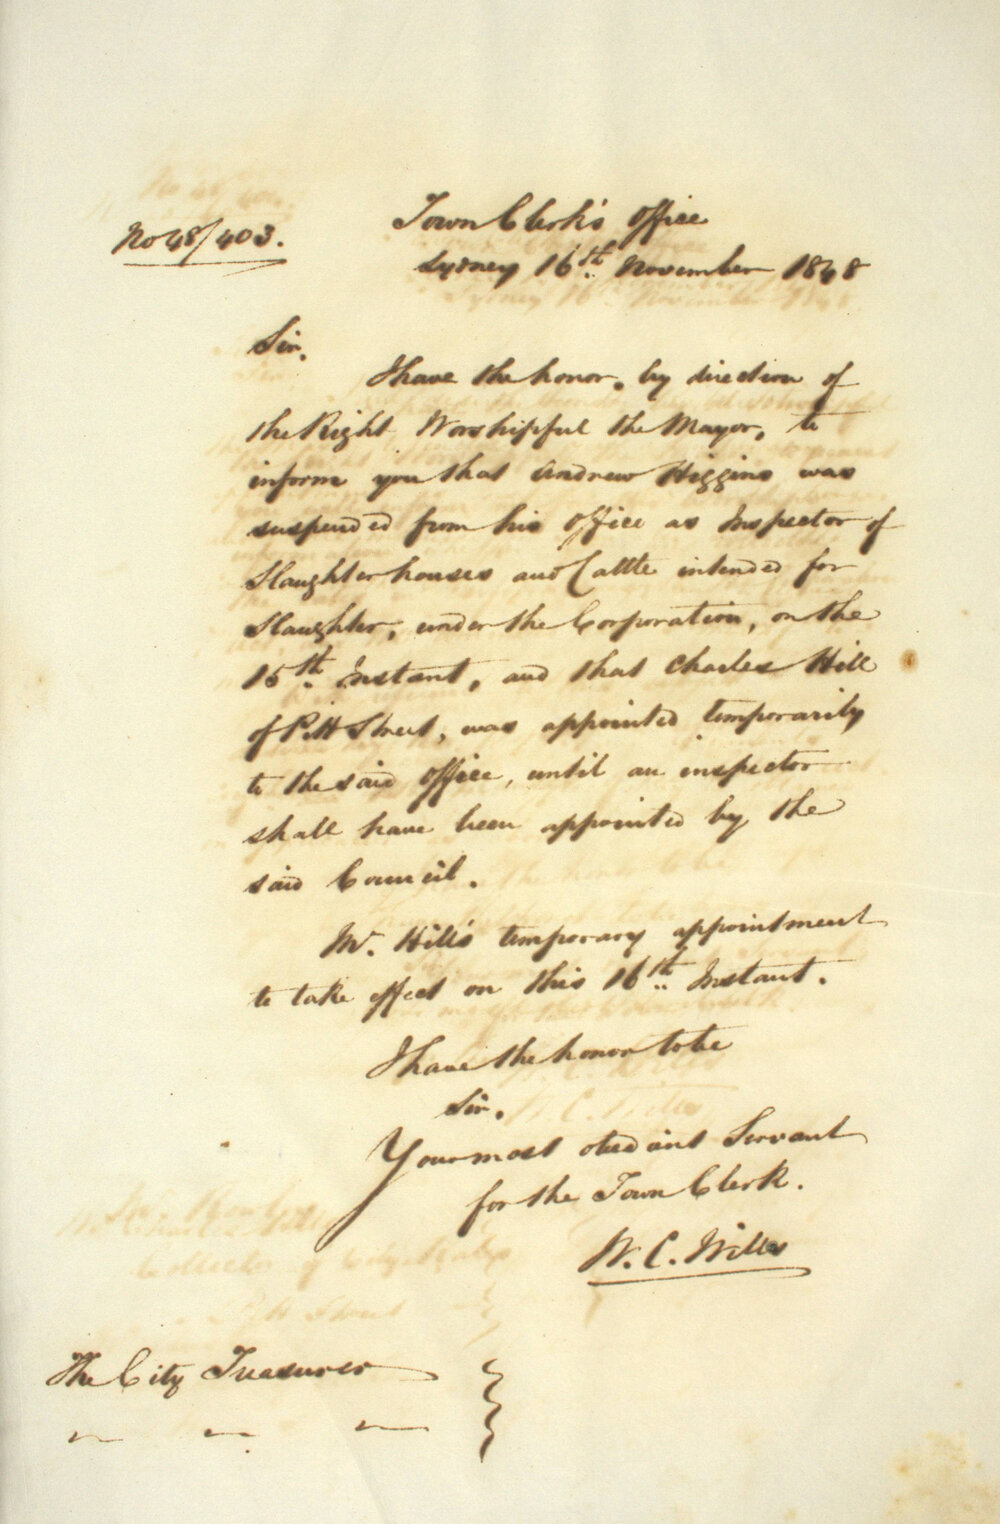 No 48/403.
Town Clerk's Office
Sydney 16th November 1848
Sir,
I have the honor, by direction of
the Right Worshipful the Mayor, to
inform you that Andrew Higgins was
suspended from his office as Inspector of
Slaughterhouses and Cattle intended for
Slaughter, under the Corporation, on the
15th Instant, and that Charles Hill
of Pitt Street, was appointed temporarily
to the said office, until an inspector
shall have been appointed by the
said Council.
Mr. Hill's temporary appointment
to take effect on this 16th Instant.
I have the honor to be
Sir,
Your most obedient Servant
for the Town Clerk.
W. C. Wills
The City Treasurer